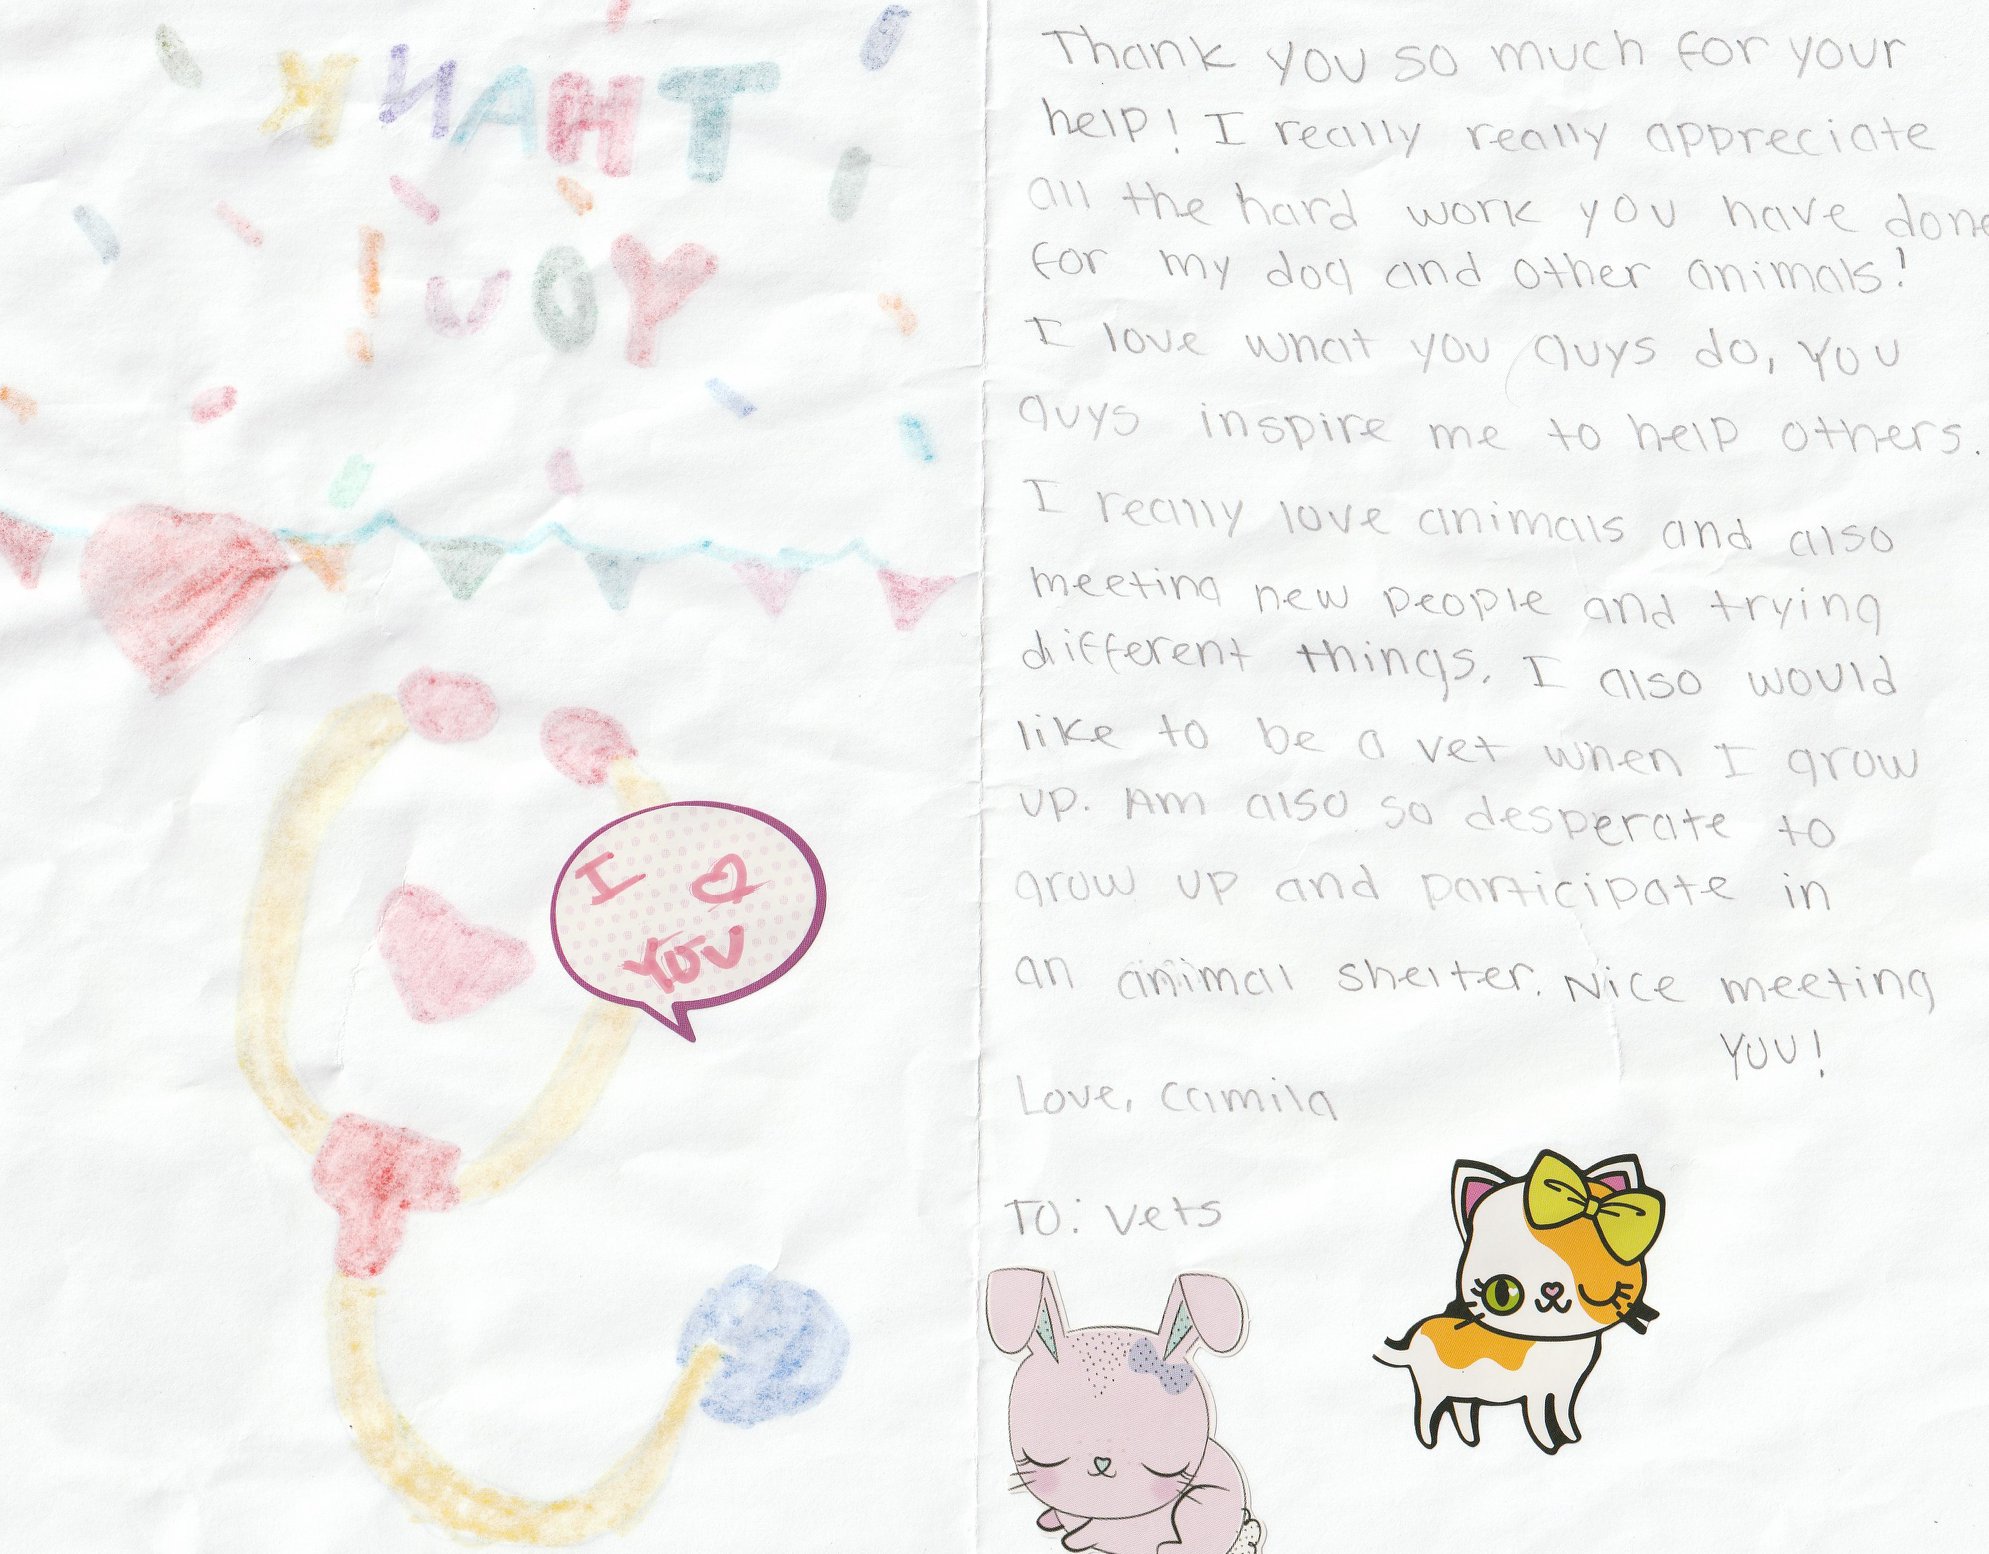 THANK
YOU!
I ♡
YOU
Thank you so much for your
help! I really really appreciate
all the hard work you have done
for my dog and other animals!
I love what you guys do, you
guys inspire me to help others.
I really love animals and also
meeting new people and trying
different things. I also would
like to be a vet when I grow
up. Am also so desperate to
grow up and participate in
an animal shelter. Nice meeting
you!
Love, Camila
To: vets